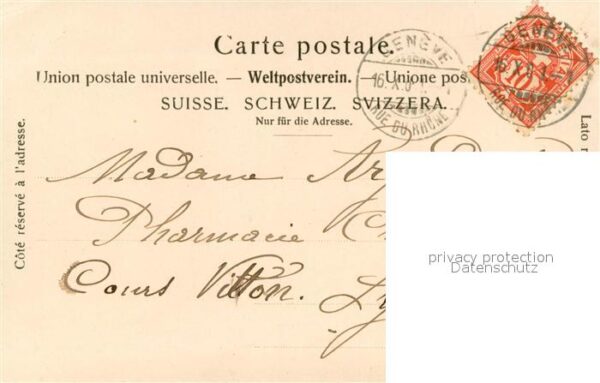 Carte postale.
Union postale universelle. — Weltpostverein. — Unione pos
SUISSE. SCHWEIZ. SVIZZERA.
Nur für die Adresse.
Côté réservé à l'adresse.
Lato
GENÈVE
16.X.0
RUE DU RHÔNE
GENÈVE
16.X.0
RUE DU RHÔNE
Madame
Pharmacie
Cours Vitton.
privacy protection
Datenschutz